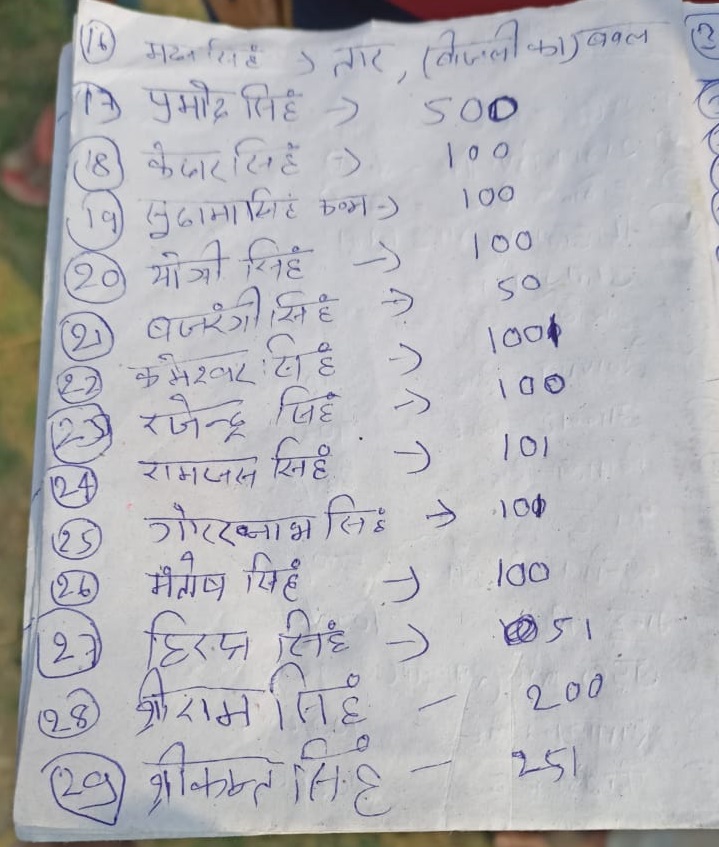 (16) मदन सिहं → तार, (बिजली का) बबल
(17) प्रमोद सिहं → 500
(18) केदार सिहं → 100
(19) सुदामा सिहं → 100
(20) योगी सिहं → 100
(21) बजरंगी सिहं → 50
(22) कमेश्वर सिहं → 100
(23) राजेन्द्र सिहं → 100
(24) रामजस सिहं → 101
(25) गोरखनाथ सिहं → 101
(26) संतोष सिहं → 100
(27) सिहं → 51
(28) श्रीराम सिहं – 200
(29) श्रीकान्त सिहं – 251